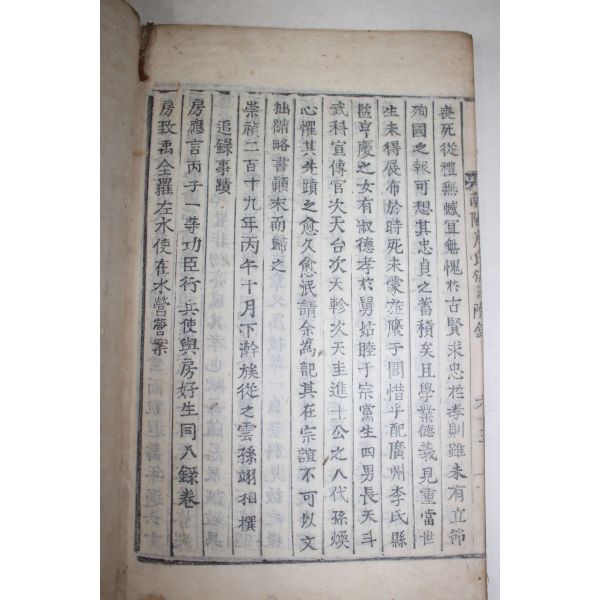 喪死從禮無憾宜無愧於古賢求忠於孝則雖未有立節
殉國之報可想其忠貞之蓄積矣且學業德義見重當世
生未得展布於時死未蒙旌褒于閭惜乎配廣州李氏縣
監亨慶之女有淑德孝於舅姑睦于宗黨生四男長天斗
武科宣傳官次天台次天軫次天圭進士公之八代孫煥
心懼其先蹟之愈久愈泯請余爲記其在宗誼不可以文
拙辭略書顚末而歸之
崇禎二百十九年丙午十月下澣族從之雲孫翊相撰
追錄事蹟
房應言丙子一等功臣行兵使與房好生同入錄卷
房致禹全羅左水使在水營營案
南陽房氏
附錄